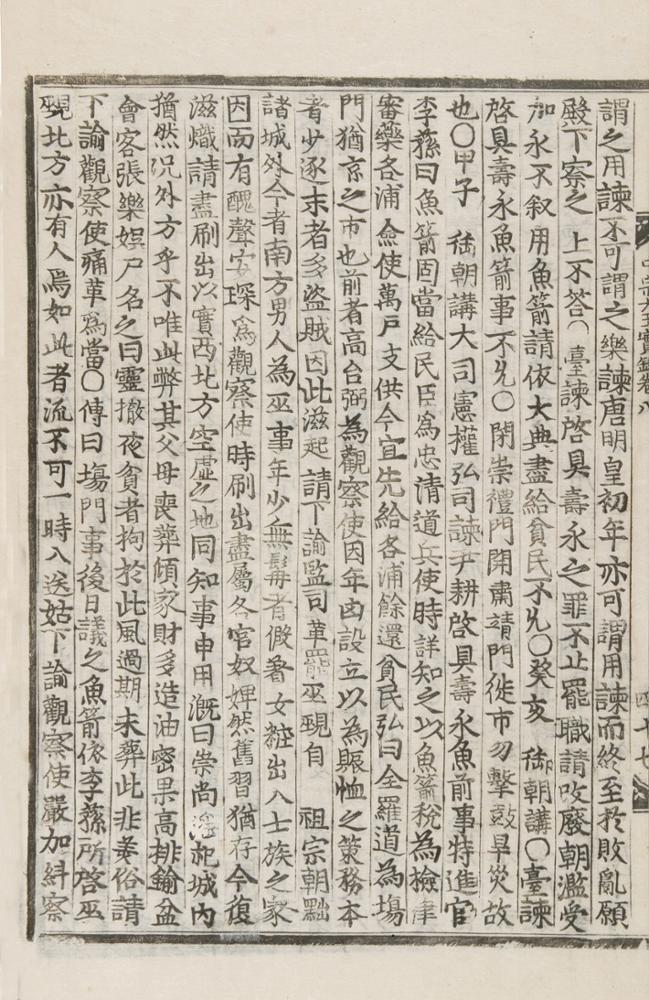 謂之用諫不可謂之樂諫唐明皇初年亦可謂用諫而終至於敗亂願
殿下察之 上不答○臺諫啓具壽永之罪不止罷職請改廢朝濫受
加永不叙用魚箭請依大典盡給貧民不允○癸亥 御朝講○臺諫
啓具壽永魚箭事不允○閉崇禮門開肅靖門徙市勿擊鼓旱災故
也○甲子 御朝講大司憲權弘司諫尹耕啓具壽永魚箭事特進官
李蓀曰魚箭固當給民臣爲忠清道兵使時詳知之以魚箭稅為檢津
審藥各浦僉使萬戶支供今宜先給各浦餘還貧民弘曰全羅道為場
門猶京之市也前者高台弼為觀察使因年凶設立以為賑恤之策務本
者少逐末者多盜賊因此滋起請下諭監司革罷巫覡自 祖宗朝黜
諸城外今者南方男人為巫事年少無髯者假着女粧出入士族之家
因而有醜聲安琛爲觀察使時刷出盡屬各官奴婢然舊習猶存今復
滋熾請盡刷出以實西北方空虛之地同知事申用漑曰崇尚淫祀城內
猶然况外方乎不唯此弊其父母喪葬傾家財多造油蜜果高排鍮盆
會客張樂娛尸名之曰靈撤夜貧者拘於此風過期未葬此非美俗請
下諭觀察使痛革爲當○傳曰場門事後日議之魚箭依李蓀所啓巫
覡北方亦有人焉如此者流不可一時入送姑下諭觀察使嚴加糾察